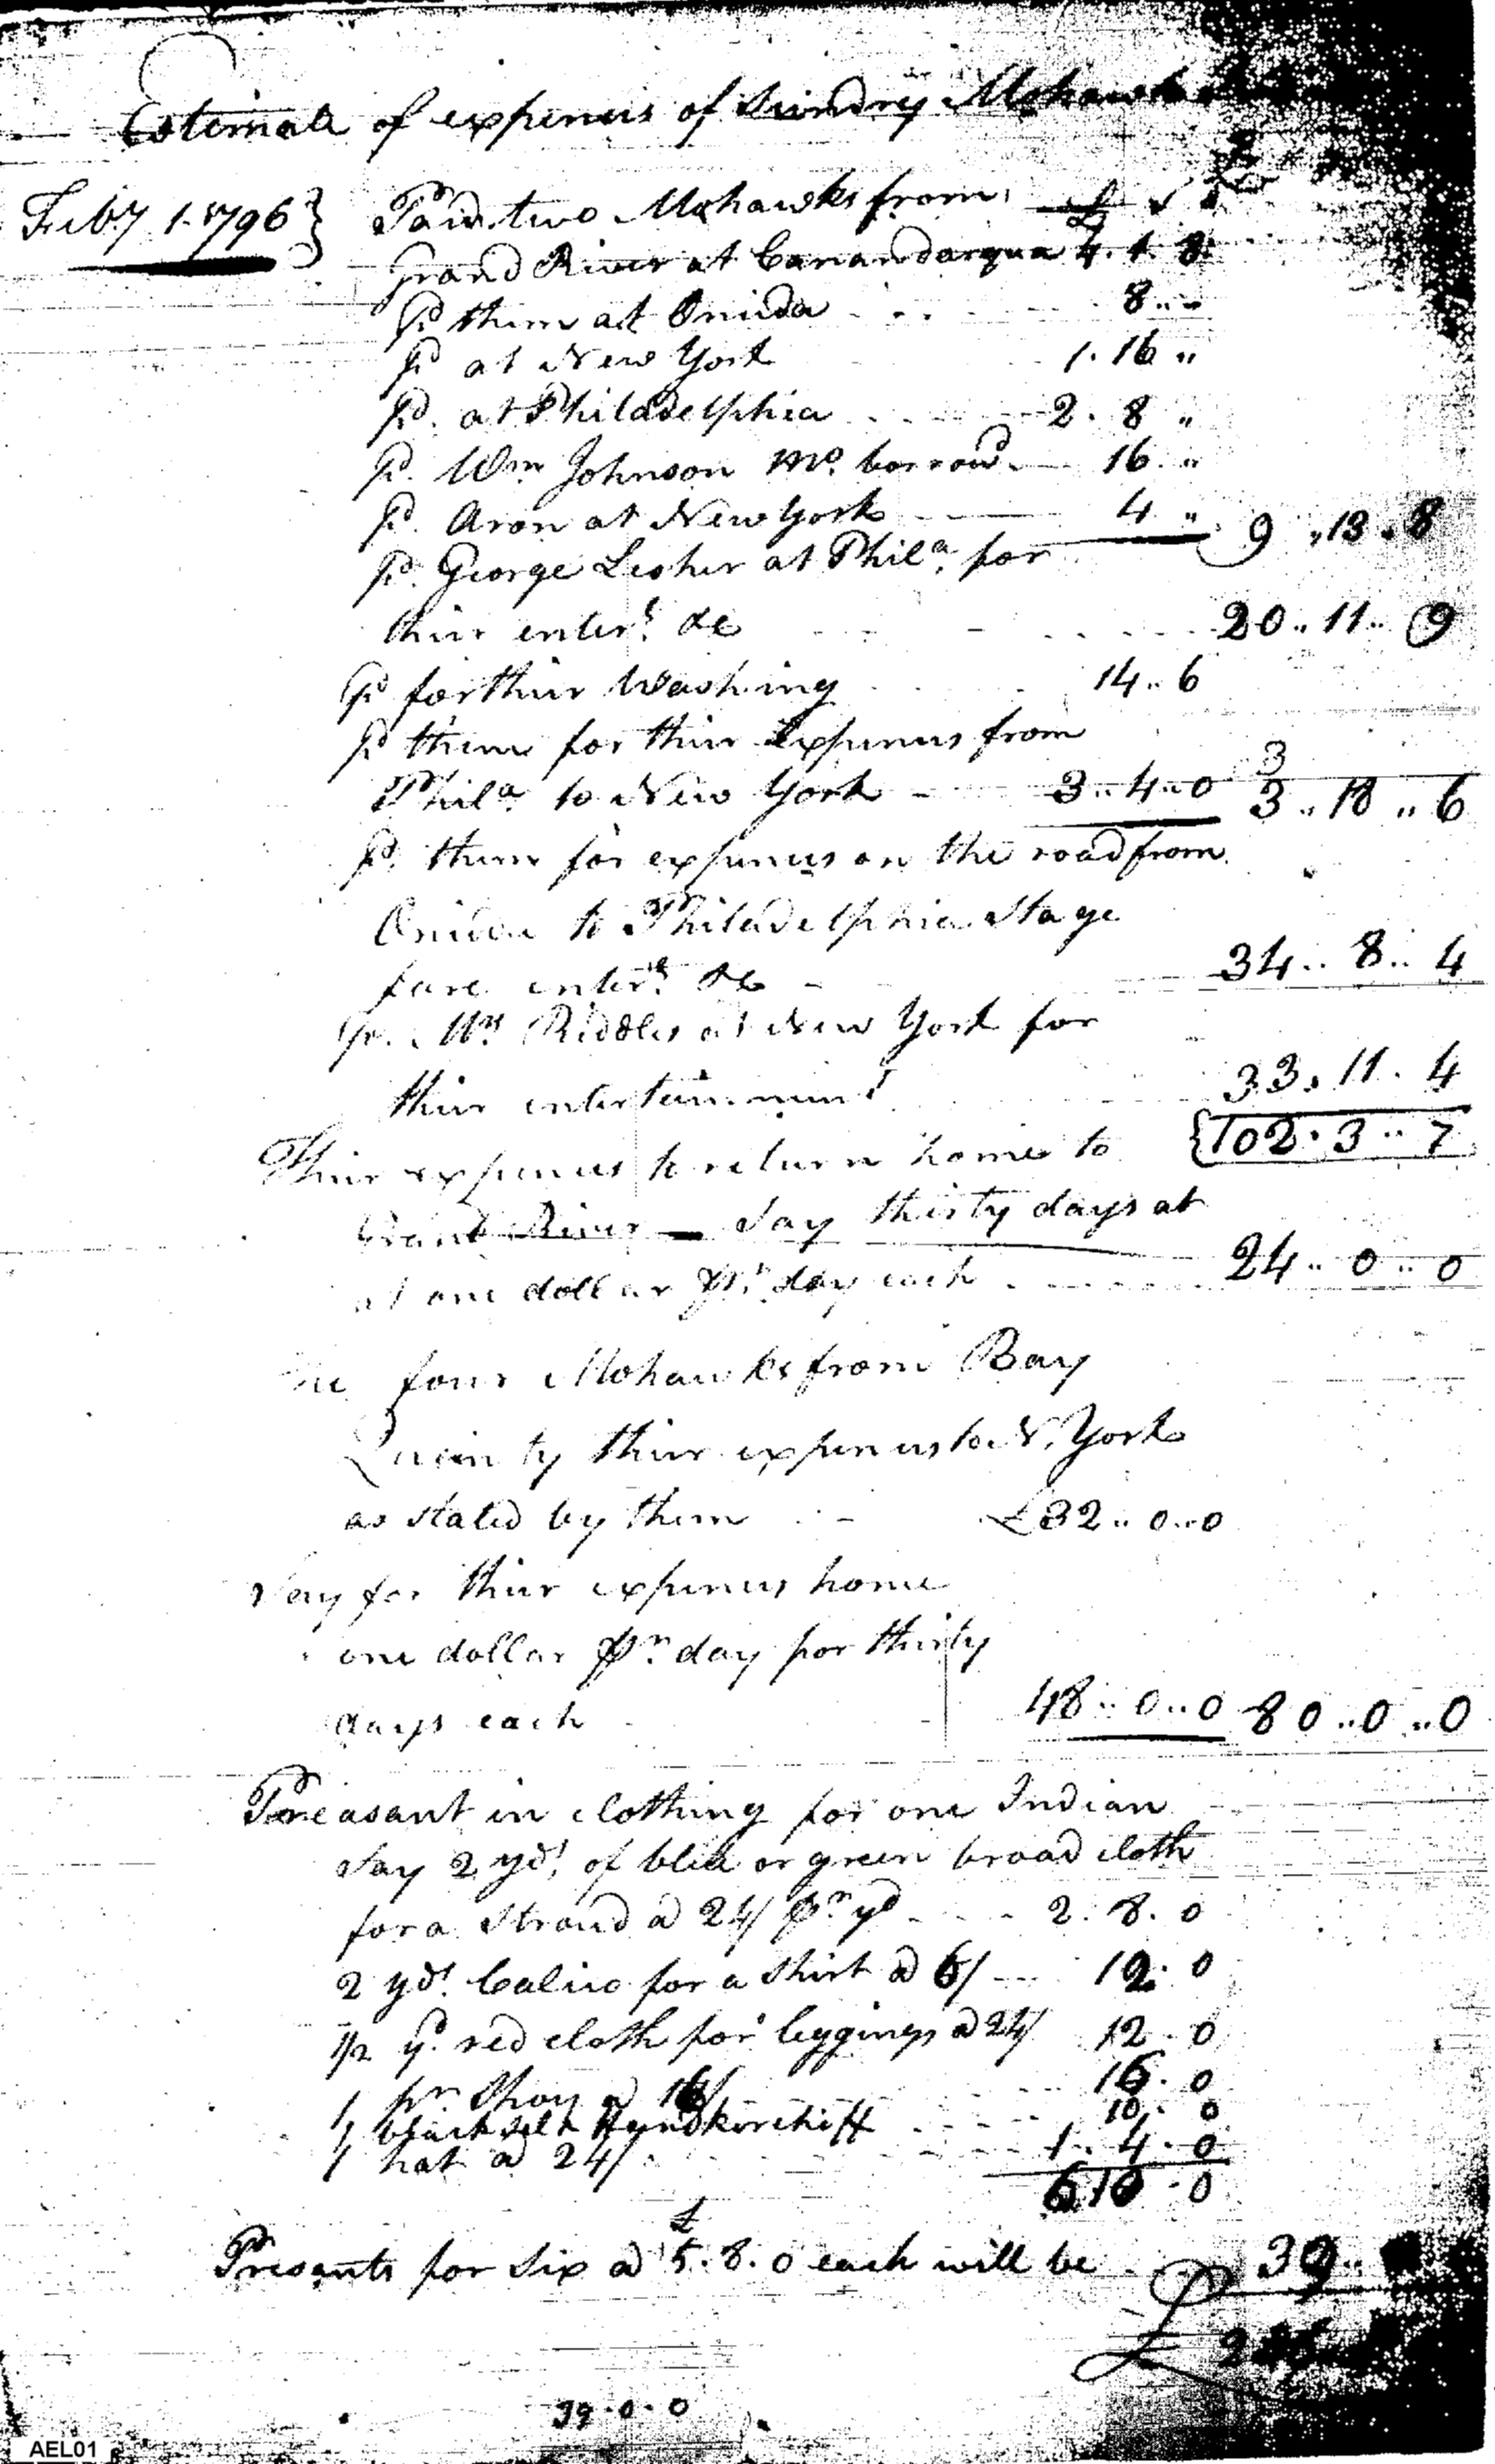 Estimate of expences of Sundry Mohawks
£
Feby 1. 1796} Paid two Mohawks from £ s
Grand River at Canandarqua 4. 1. 8
pd them at Onida - - - 8 ..
pd at New York 1. 16 "
pd. at Philadelphia - - - 2. 8 "
pd. Wm Johnson mo. borrowd - 16. "
pd. Aron at New York - 4 " 9 .. 13 .. 8
pd. George Lesher at Phila. for
thier entert. &c - - - 20 .. 11 .. 9
pd for thier Washing - - 14 .. 6
pd them for thier Expences from
3
Phila. to New York - 3 .. 4 .. 0 3 .. 18 .. 6
pd. them for expences on the road from
Onida to Philadelphia Stage
fare entert. &c - 34 .. 8 .. 4
pd. Mrs Riddles at New York for
thier entertainment 33. 11. 4
Thier expences to return home to {102. 3 .. 7
Grand River — Say thirty days at
at one dollar pr. day each - - - 24 .. 0 .. 0
four Mohawks from Bay
thier expences to N. York
as stated by them - £32 .. 0 .. 0
Say for thier expences home
one dollar pr. day for thirty
days each - 48 .. 0 .. 0 80 .. 0 .. 0
Preasant in clothing for one Indian
Say 2 yds. of blue or green broad cloth
for a Stroud a 24/ pr yd - - - 2. 8. 0
2 yds. Calico for a Shirt a 6/ - - 12. 0
1/2 yd. red cloth for leggings a 24/ 12. 0
1 pr Shoes a 16/ - - - 16. 0
1 black silk Handkirchiff - - - 10. 0
1 hat a 24/ - - - 1. 4. 0
6 10 . 0
£
Presants for Six a 5. 8. 0 each will be - 39 ..
£ 2
39 . 0 . 0
AEL01